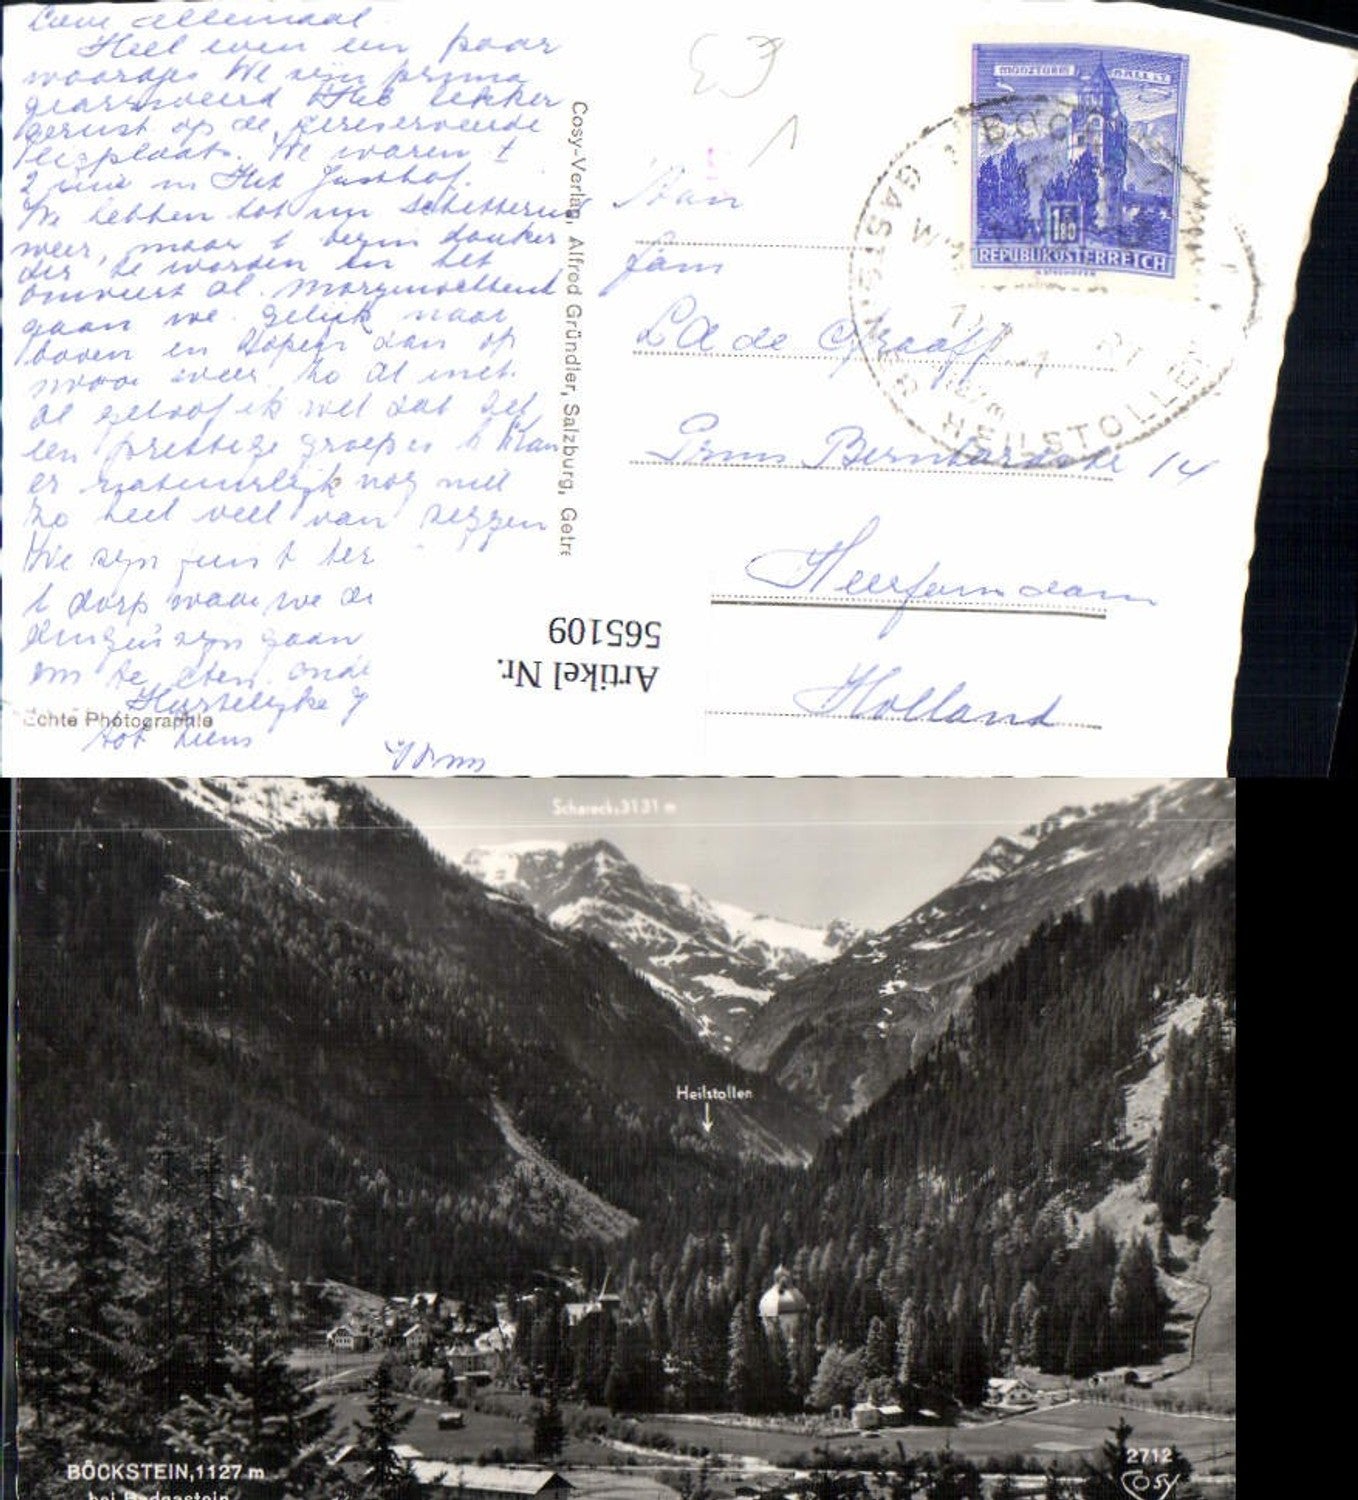 Lieve allemaal
Heel even een paar
woordjes We zijn prima
gearriveerd lekker
gerust op de gereserveerde
ligplaats. We waren ±
2 in Het Gasthof.
We hebben tot nu schitterend
weer, maar 't begin donker
der te worden en het
al. Morgenochtend
gaan we gelijk naar
boven en hopen dan op
mooi weer. Zo al met
al geloof ik wel dat het
een prettige groep is k Kan
er natuurlijk nog niet
zo heel veel van zeggen
We zijn
t dorp waar we
gaan
om te eten.
Hartelijke
tot ziens
Echte Photographie
Cosy-Verlag, Alfred Gründler, Salzburg, Getre
Artikel Nr.
565109
MÜNZTURM HALL I.T.
1.80
REPUBLIK ÖSTERREICH
HEILSTOLLEN
Aan
fam
de Graaff
Prins Bernhard 14
Holland
Schareck, 3131 m
Heilstollen
BÖCKSTEIN, 1127 m
bei Badgastein
2712
Cosy